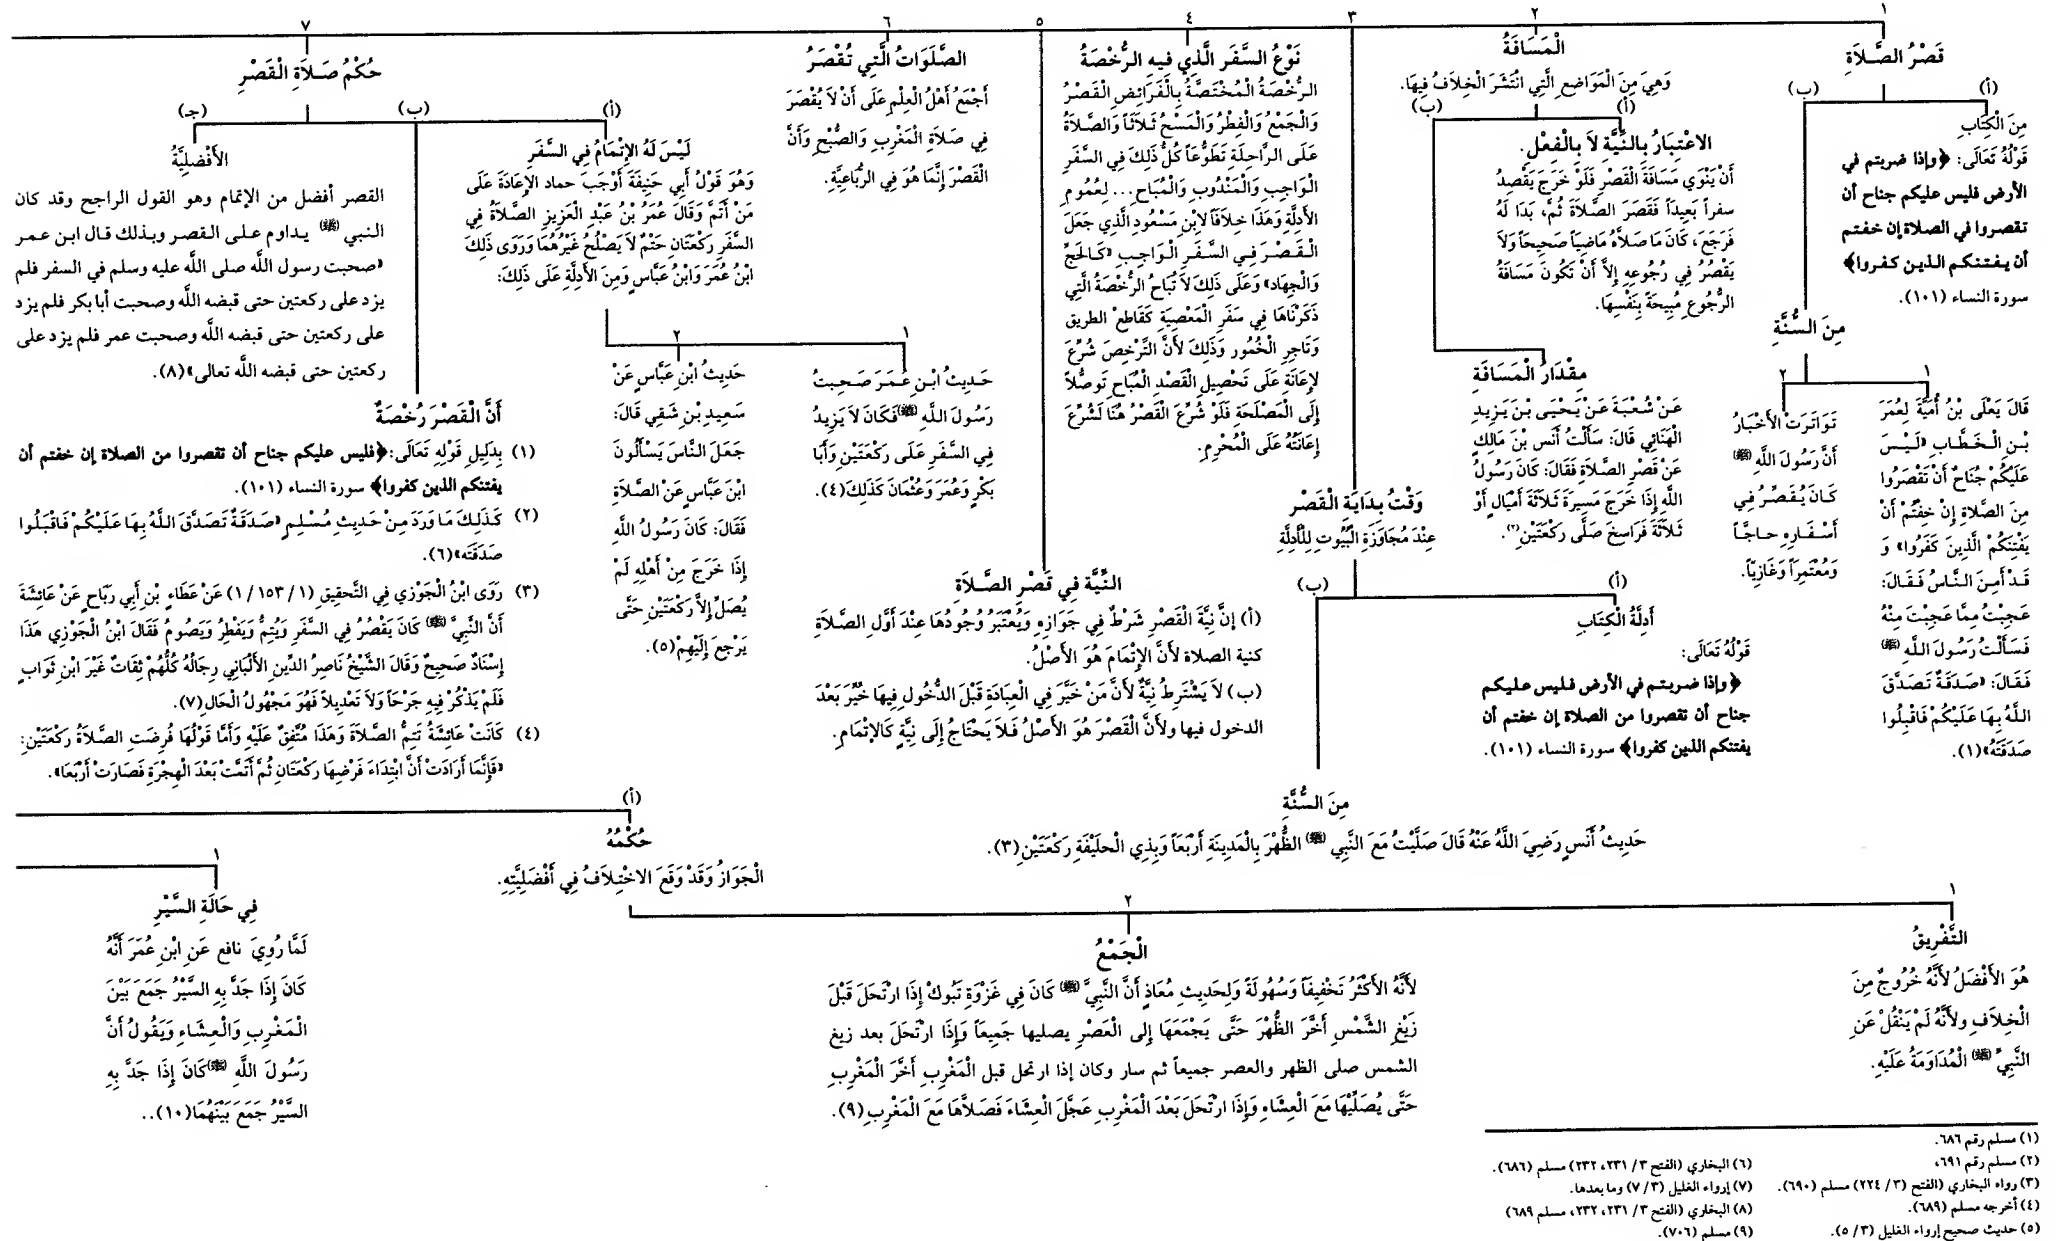 ١
قَصْرُ الصَّلاَةِ
(أ)
مِنَ الْكِتَابِ
قَوْلُهُ تَعَالَى: ﴿وإذا ضربتم في
الأرض فليس عليكم جناح أن
تقصروا في الصلاة إن خفتم
أن يفتنكم الذين كفروا﴾
سورة النساء (١٠١).
(ب)
مِنَ السُّنَّةِ
١
قَالَ يَعْلَى بْنُ أُمَيَّةَ لِعُمَرَ
بْنِ الْخَطَّابِ «لَيْسَ
عَلَيْكُمْ جُنَاحٌ أَنْ تَقْصُرُوا
مِنَ الصَّلاَةِ إِنْ خِفْتُمْ أَنْ
يَفْتِنَكُمْ الَّذِينَ كَفَرُوا» وَ
قَدْ أَمِنَ النَّاسُ فَقَالَ:
عَجِبْتُ مِمَّا عَجِبْتَ مِنْهُ
فَسَأَلْتُ رَسُولَ اللَّهِ (ﷺ)
فَقَالَ: «صَدَقَةٌ تَصَدَّقَ
اللَّهُ بِهَا عَلَيْكُمْ فَاقْبِلُوا
صَدَقَتَهُ»(١).
٢
تَوَاتَرَتْ الأَخْبَارُ
أَنَّ رَسُولَ اللَّهِ (ﷺ)
كَانَ يُقَصِّرُ فِي
أَسْفَارِهِ حاجًّا
وَمُعْتَمِراً وَغَازِيّاً.
٢
الْمَسَافَةُ
وَهِيَ مِنَ الْمَوَاضِعِ الَّتِي انْتَشَرَ الْخِلاَفُ فِيهَا.
(أ)
الاعْتِبَارُ بِالنِّيَّةِ لاَ بِالْفِعْلِ.
أَنْ يَنْوِيَ مَسَافَةَ الْقَصْرِ فَلَوْ خَرَجَ يَقْصِدُ
سفراً بَعِيداً فَقَصَرَ الصَّلاَةَ ثُمَّ، بَدَا لَهُ
فَرَجَعَ، كَانَ مَا صَلاَّهُ مَاضِيَاً صَحِيحَاً وَلاَ
يَقْصُرُ فِي رُجُوعِهِ إِلاَّ أَنْ تَكُونَ مَسَافَةُ
الرُّجُوعِ مُبِيحَةً بِنَفْسِهَا.
(ب)
مِقْدَارُ الْمَسَافَةِ
عَنْ شُعْبَةَ عَنْ يَحْيَى بْنَ يَزِيدِ
الْهَنَائِي قَالَ: سَأَلْتُ أَنَس بْنَ مَالِكٍ
عَنْ قَصْرِ الصَّلاَةِ فَقَالَ: كَانَ رَسُولُ
اللَّهِ إِذَا خَرَجَ مَسِيرَةَ ثَلاَثَةَ أَمْيَالٍ أَوْ
ثَلاَثَةَ فَرَاسِخَ صَلَّى رَكْعَتَيْنِ(٢).
٣
وَقْتُ بِدَايَةِ الْقَصْر
عِنْدَ مُجَاوَزَةِ الْبُيُوتِ لِلأَدِلَّةِ
(أ)
أَدِلَّةُ الْكِتَابِ
قَوْلُهُ تَعَالَى:
﴿وإذا ضربتم في الأرض فليس عليكم
جناح أن تقصروا من الصلاة إن خفتم أن
يفتنكم الذين كفروا﴾ سورة النساء (١٠١).
(ب)
مِنَ السُّنَّةِ
حَدِيثُ أَنَسٍ رَضِيَ اللَّهُ عَنْهُ قَالَ صَلَّيْتُ مَعَ النَّبِي (ﷺ) الظُّهْرَ بِالْمَدِينَةِ أَرْبَعَاً وَبِذِي الْحلَيْفَةِ رَكْعَتَيْنِ(٣).
٤
نَوْعُ السَّفَرِ الَّذِي فيه الرُّخْصَةُ
الرُّخْصَةُ الْمُخْتَصَّةُ بِالْفَرَائِضِ الْقَصْرُ
وَالْجَمْعُ وَالْفِطْرُ وَالْمَسْحُ ثَلاَثَاً وَالصَّلاَةُ
عَلَى الرَّاحِلَةِ تَطَوُّعَاً كُلُّ ذَلِكَ فِي السَّفَرِ
الْوَاجِبِ وَالْمَنْدُوبِ وَالْمُبَاحِ... لِعُمُومِ
الأَدِلَّةِ وَهَذَا خِلاَفَاً لاِبْنِ مَسْعُودِ الَّذِي جَعَلَ
الْقَصْرَ فِي السَّفَرِ الْوَاجِبِ «كَالحَجِّ
وَالْجِهَادِ» وَعَلَى ذَلِكَ لاَ تُبَاحُ الرُّخْصَةُ الَّتِي
ذَكَرْنَاهَا فِي سَفَرِ الْمَعْصِيَةِ كَقَاطِعْ الطريق
وَتَاجِرِ الْخُمُورِ وَذَلِكَ لأَنَّ التَّرْخِصَ شُرِّعَ
لإِعَانَةِ عَلَى تَحْصِيلِ الْقَصْدِ الْمُبَاحِ تَوصُّلاً
إِلَى الْمَصْلَحَةِ فَلَوْ شُرِّعَ الْقَصْرُ هُنَا لَشُرِّعَ
إِعَانَتُهُ عَلَى الْمُحْرِمِ.
٥
النِّيَّة فِي قَصْرِ الصَّلاَةِ
(أ) إنَّ نِيَّةَ الْقَصْرِ شَرْطٌ فِي جَوَازِهِ وَيُعْتَبَرُ وُجُودُهَا عِنْدَ أَوَّلِ الصَّلاَةِ
كنية الصلاة لأَنَّ الإِتْمَامَ هُوَ الأَصْلُ.
(ب) لاَ يَشْتَرِطُ نِيَّةٌ لأَنَّ مَنْ خَيَّرَ فِي الْعِبَادَةِ قَبْلَ الدُّخُولِ فِيهَا خُيِّرَ بَعْدَ
الدخول فيها ولأَنَّ الْقَصْرَ هُوَ الأَصْلُ فَلاَ يَحْتَاجُ إِلَى نِيَّةٍ كَالإِتْمَامِ.
٦
الصَّلَوَاتُ الَّتِي تُقْصَرُ
أَجْمَعُ أَهْلُ الْعِلْمِ عَلَى أَنْ لاَ يُقْصَرَ
فِي صَلاَةِ الْمَغْرِبِ وَالصُّبْحِ وَأَنَّ
الْقَصْرَ إِنَّمَا هُوَ فِي الرُّبَاعِيَّةِ.
٧
حُكْمُ صَلاَةِ الْقَصْرِ
(أ)
لَيْسَ لَهُ الإِتْمَامُ فِي السَّفَرِ
وَهُوَ قَوْلُ أَبِي حَنِيفَةَ أَوْجَبَ حماد الإِعَادَةَ عَلَى
مَنْ أَتَمَّ وَقَالَ عُمَرُ بْنُ عَبْدِ الْعَزِيزِ الصَّلاَةُ فِي
السَّفَرِ رَكْعَتَانِ حَتْمٌ لاَ يَصْلُحُ غَيْرُهُمَا وَرَوَى ذَلِكَ
ابْنُ عُمَرَ وَابْنُ عَبَّاسٍ وَمِنَ الأَدِلَّةِ عَلَى ذَلِكَ:
١
حَدِيثُ ابْنِ عُمَرَ صَحِبتُ
رَسُولَ اللَّهِ (ﷺ) فَكَانَ لاَ يَزِيدُ
فِي السَّفَرِ عَلَى رَكْعَتَيْنِ وَأَبَا
بَكْرٍ وَعُمَرَ وَعُثْمَانَ كَذَلِكَ(٤).
٢
حَدِيثُ ابْنِ عَبَّاسٍ عَنْ
سَعِيدِ بْنِ شَفِي قَالَ:
جَعَلَ النَّاسَ يَسْأَلُونَ
ابْنَ عَبَّاسٍ عَنْ الصَّلاَةِ
فَقَالَ: كَانَ رَسُولُ اللَّهِ
إِذَا خَرَجَ مِنْ أَهْلِهِ لَمْ
يُصَلِّ إِلاَّ رَكْعَتَيْنِ حَتَّى
يَرْجِعَ إِلَيْهِمْ(٥).
(ب)
أَنَّ الْقَصْرَ رُخْصَةٌ
(١) بِدَلِيلِ قَوْلِهِ تَعَالَى: ﴿فليس عليكم جناح أن تقصروا من الصلاة إن خفتم أن
يفتنكم الذين كفروا﴾ سورة النساء (١٠١).
(٢) كَذَلِكَ مَا وَرَدَ مِنْ حَدِيثِ مُسْلِمٍ «صَدَقَةٌ تَصَدَّقَ اللَّهُ بِهَا عَلَيْكُمْ فَاقْبَلُوا
صَدَقَتَه»(٦).
(٣) رَوَى ابْنُ الْجَوْزِي فِي التَّحْقِيقِ (١/١٥٣/١) عَنْ عَطَاءٍ بْنِ أَبِي رَبَاحٍ عَنْ عَائِشَةَ
أَنَّ النَّبِيَّ (ﷺ) كَانَ يَقْصُرُ فِي السَّفَرِ وَيُتِمُّ وَيَفْطِرُ وَيَصُومُ فَقَالَ ابْنُ الْجَوْزِي هَذَا
إِسْنَادٌ صَحِيحٌ وَقَالَ الشَّيْخُ نَاصِرُ الدِّينِ الأَلْبَانِي رِجَالُهُ كُلُّهُمْ ثِقَاتٌ غَيْرَ ابْنِ ثَوَابٍ
فَلَمْ يَذْكُرْ فِيهِ جَرْحَاً وَلاَ تَعْدِيلاً فَهُوَ مَجْهُولُ الْحَالِ(٧).
(٤) كَانَتْ عَائِشَةُ تَتِمُّ الصَّلاَةَ وَهَذَا مُتَّفِقٌ عَلَيْهِ وَأَمَّا قَوْلُهَا فُرِضَتِ الصَّلاَةُ رَكْعَتَيْنِ:
«فَإِنَّمَا أَرَادَتْ أَنَّ ابْتِدَاءَ فَرْضِهَا رَكْعَتَانِ ثُمَّ أَتَمَّتْ بَعْدَ الْهِجْرَةِ فَصَارَتْ أَرْبَعَا».
(جـ)
الأَفْضَلِيَّةُ
القصر أفضل من الإتمام وهو القول الراجح وقد كان
النبي (ﷺ) يداوم على القصر وبذلك قال ابن عمر
«صحبت رسول اللَّه صلى اللَّه عليه وسلم في السفر فلم
يزد على ركعتين حتى قبضه اللَّه وصحبت أبا بكر فلم يزد
على ركعتين حتى قبضه اللَّه وصحبت عمر فلم يزد على
ركعتين حتى قبضه اللَّه تعالى»(٨).
(أ)
حُكْمُهُ
الْجَوَازُ وَقَدْ وَقَعَ الاخْتِلاَفُ فِي أَفْضَلِيَّتِهِ.
١
التَّفْرِيقُ
هُوَ الأَفْضَلُ لأَنَّهُ خُرُوجٌ مِنَ
الْخِلاَفِ ولأَنَّهُ لَمْ يَنْقُلْ عَنِ
النَّبِيِّ (ﷺ) الْمُدَاوَمَةُ عَلَيْهِ.
٢
الْجَمْعُ
لأَنَّهُ الأَكْثَرُ تَخْفِيفَاً وَسُهُولَةً وَلِحَدِيثِ مُعَاذٍ أَنَّ النَّبِيَّ (ﷺ) كَانَ فِي غَزْوَةِ تَبُوكْ إِذَا ارْتَحَلَ قَبْلَ
زَيْغِ الشَّمْسِ أَخَّرَ الظُّهْرَ حَتَّى يَجْمَعَهَا إِلى الْعَصْرِ يصليها جَمِيعَاً وَإِذَا ارْتَحَلَ بعد زيغ
الشمس صلى الظهر والعصر جميعاً ثم سار وكان إذا ارتحل قبل الْمَغْرِبِ أَخَّرَ الْمَغْرِبِ
حَتَّى يُصَلِّيْهَا مَعَ الْعِشَاءِ وَإِذَا ارْتَحَلَ بَعْدَ الْمَغْرِبِ عَجَّلَ الْعِشَاءَ فَصَلاَّهَا مَعَ الْمَغْرِبِ(٩).
١
فِي حَالَةِ السَّيْرِ
لَمَّا رُوِيَ نافع عَنِ ابْنِ عُمَرَ أَنَّهُ
كَانَ إِذَا جَدَّ بِهِ السَّيْرُ جَمَعَ بَيْنَ
الْمَغْرِبِ وَالْعِشَاءِ وَيَقُولُ أَنَّ
رَسُولَ اللَّهِ (ﷺ) كَانَ إِذَا جَدَّ بِهِ
السَّيْرُ جَمَعَ بَيْنَهُمَا(١٠)..
(١) مسلم رقم ٦٨٦.
(٢) مسلم رقم ٦٩١،
(٣) رواه البخاري (الفتح (٣/ ٢٢٤) مسلم (٦٩٠).
(٤) أخرجه مسلم (٦٨٩).
(٥) حديث صحيح إرواء الغليل (٣/ ٥).
(٦) البخاري (الفتح ٣/ ٢٣١، ٢٣٢) مسلم (٦٨٦).
(٧) إرواء الغليل (٣/ ٧) وما بعدها.
(٨) البخاري (الفتح ٣/ ٢٣١، ٢٣٢، مسلم ٦٨٩)
(٩) مسلم (٧٠٦).